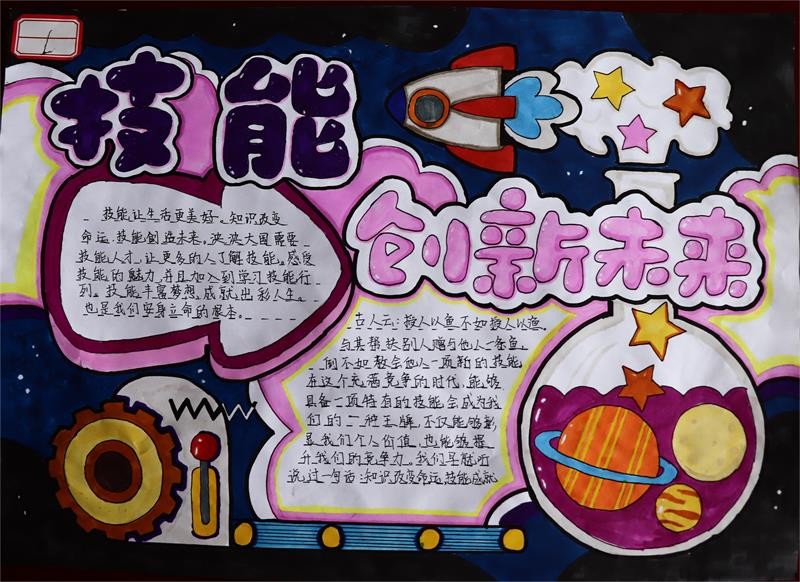 技能
创新未来
技能让生活更美好。知识改变
命运,技能创造未来。泱泱大国需要
技能人才,让更多的人了解技能。感受
技能的魅力,并且加入到学习技能行
列。技能丰富梦想,成就出彩人生。
也是我们安身立命的根本。
古人云:授人以鱼不如授人以渔,
与其帮扶别人赠与他人一条鱼,
倒不如教会他人一项新的技能
在这个充满竞争的时代,能够
具备一项特有的技能会成为我
们的一种王牌,不仅能够彰
显我们个人价值,也能够提
升我们的竞争力。我们早就听
说过一句话:知识改变命运,技能成就